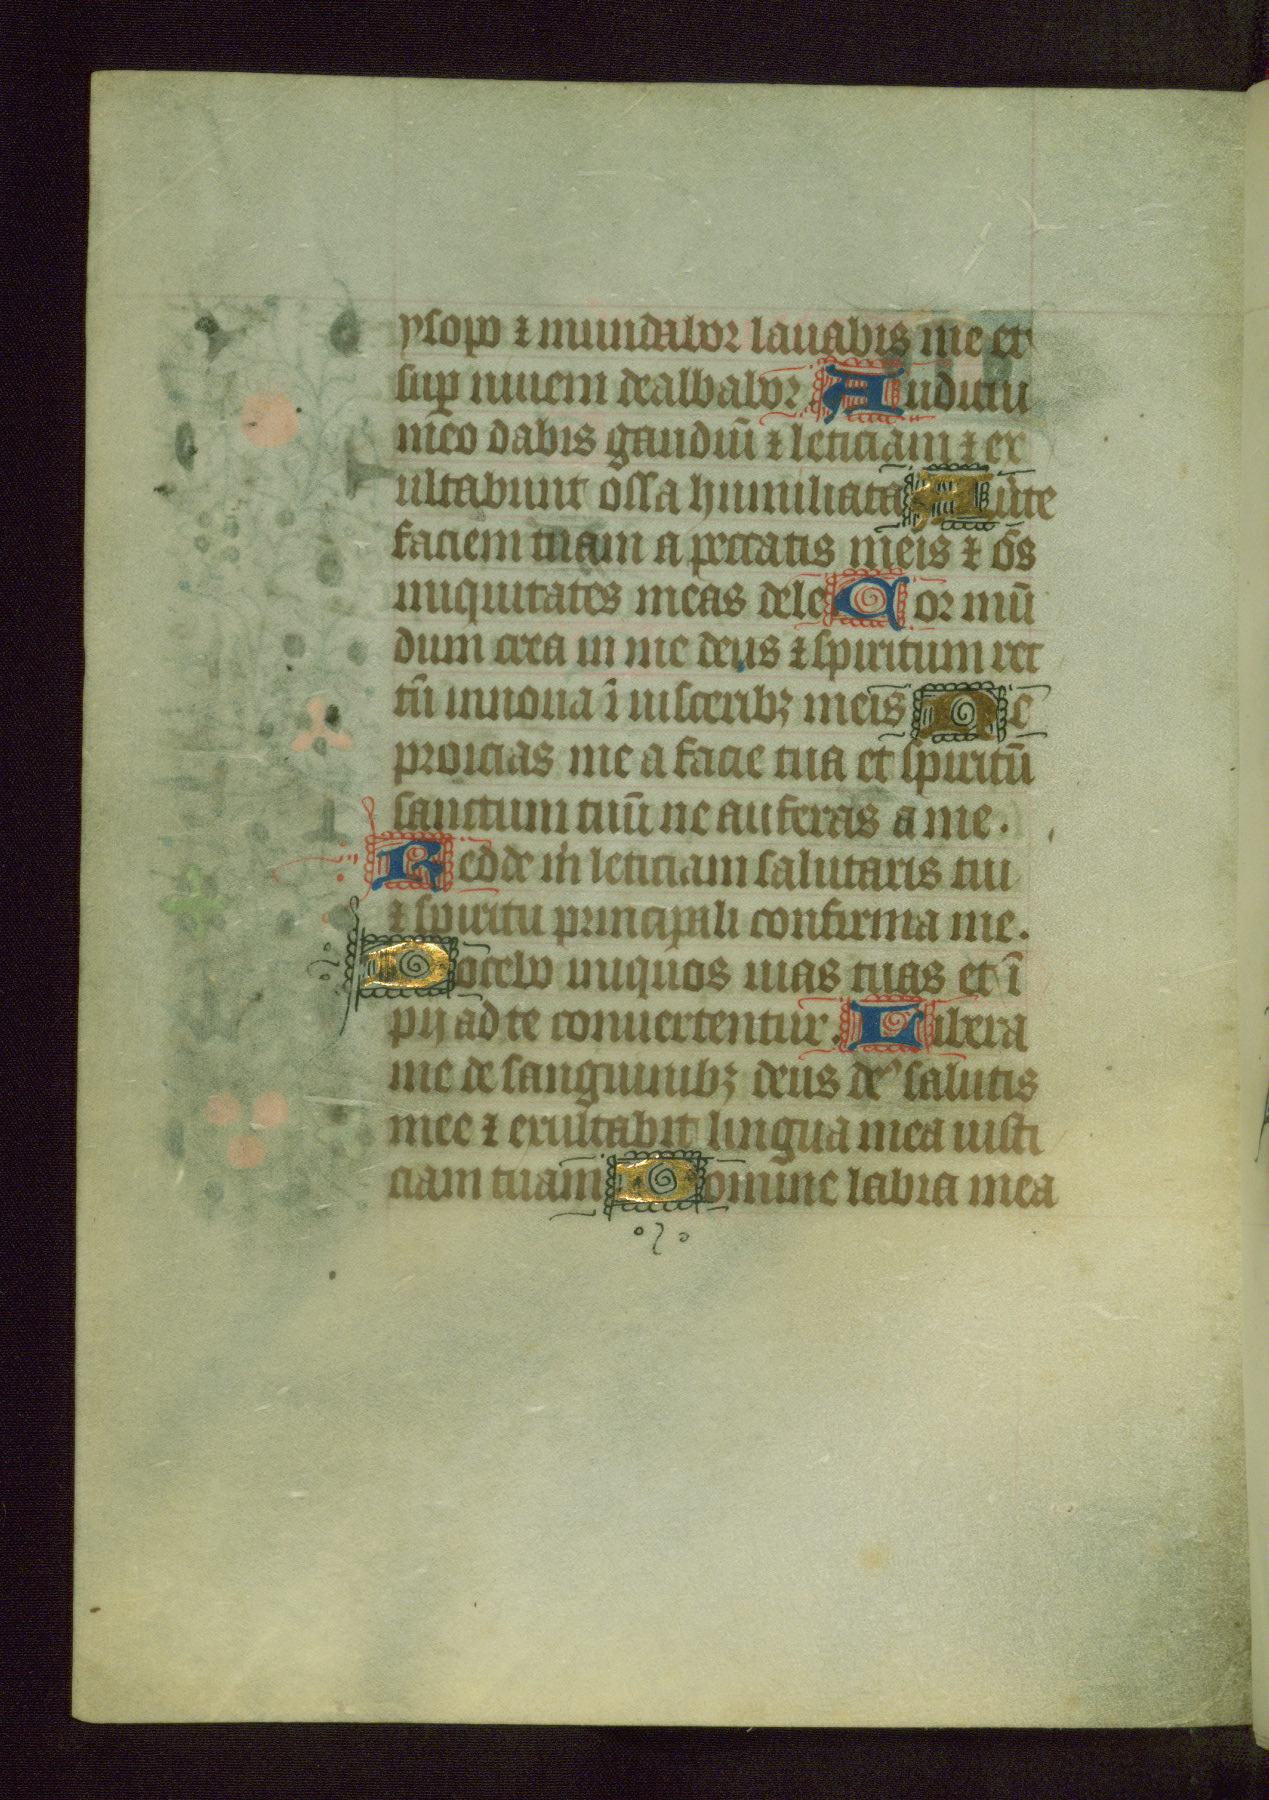 ysopo ⁊ mundabor lauabis me et
sup niuem dealbabor Auditui
meo dabis gaudiū ⁊ leticiam ⁊ ex
ultabunt ossa humiliata Auerte
faciem tuam a peccatis meis ⁊ oēs
iniquitates meas dele Cor mū
dum crea in me deus ⁊ spiritum rec
tū innoua ī uisceribꝫ meis Ne
proicias me a facie tua et spiritū
sanctum tuū ne auferas a me.
Redde m̄ leticiam salutaris tui
⁊ spiritu principali confirma me.
Docebo iniquos uias tuas et ī
pij ad te conuertentur. Libera
me de sanguinibꝫ deus de᷒ salutis
mee ⁊ exultabit lingua mea iusti
ciam tuam Domine labia mea